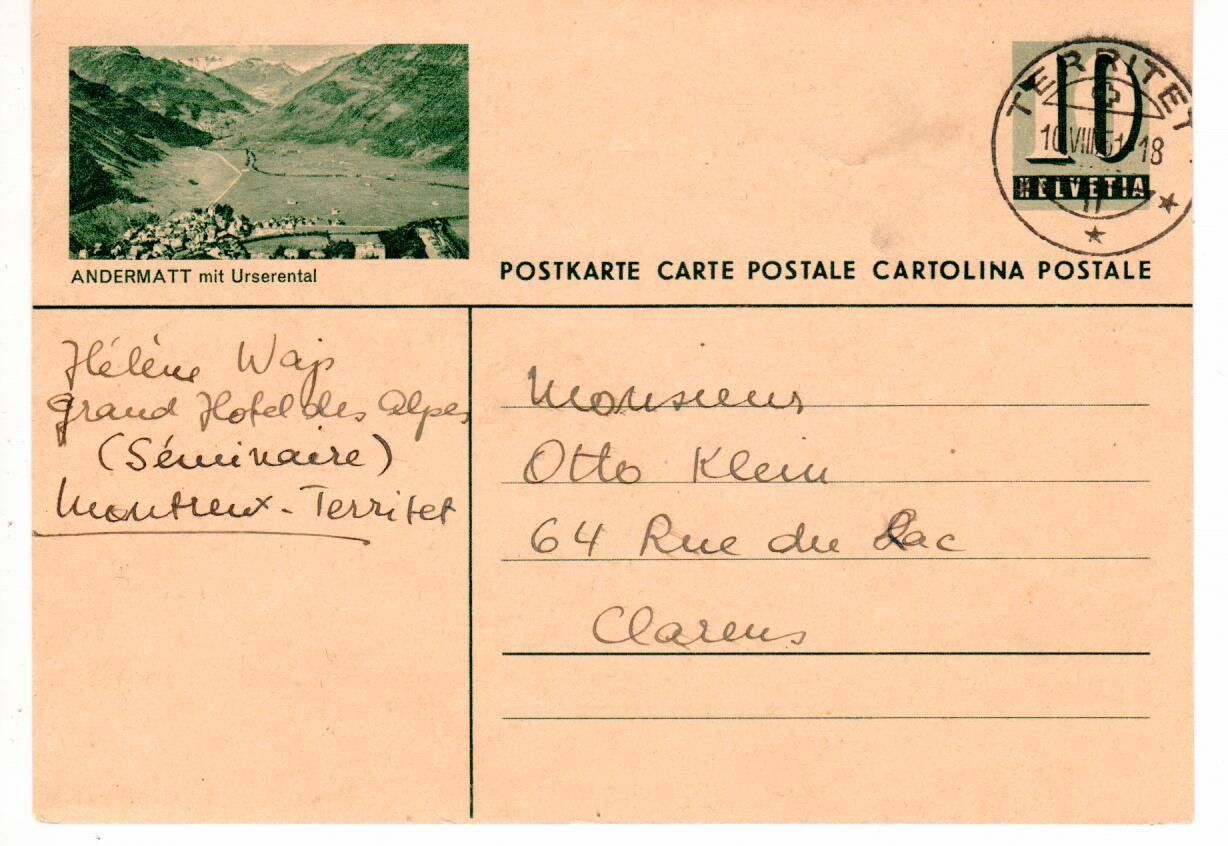 ANDERMATT mit Urserental
10
HELVETIA
TERRITET
10.VIII.51-18
POSTKARTE CARTE POSTALE CARTOLINA POSTALE
Hélène
Grand Hotel des Alpes
(Séminaire)
Montreux-Territet
Monsieur
Otto Klein
64 Rue du Lac
Clarens